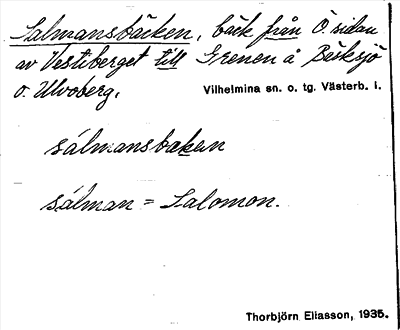 Salmansbäcken, bäck från Ö sidan
av Vestiberget till Grenen å Bäcksjö
o. Ulvoberg.
Vilhelmina sn. o. tg. Västerb. l.
sálmansbaken
sálman = Salomon.
Thorbjörn Eliasson, 1935.